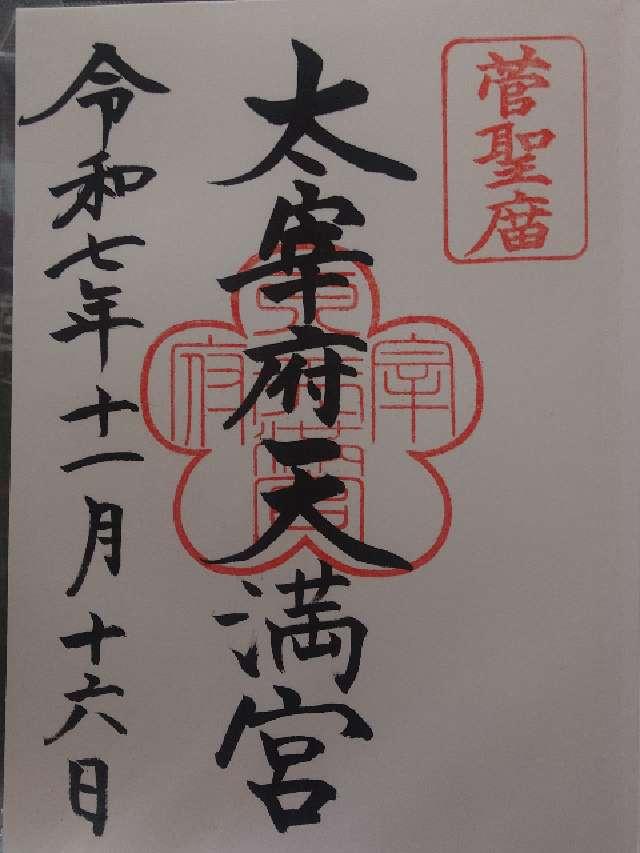 菅聖庿
太宰府天満宮
令和七年十一月十六日